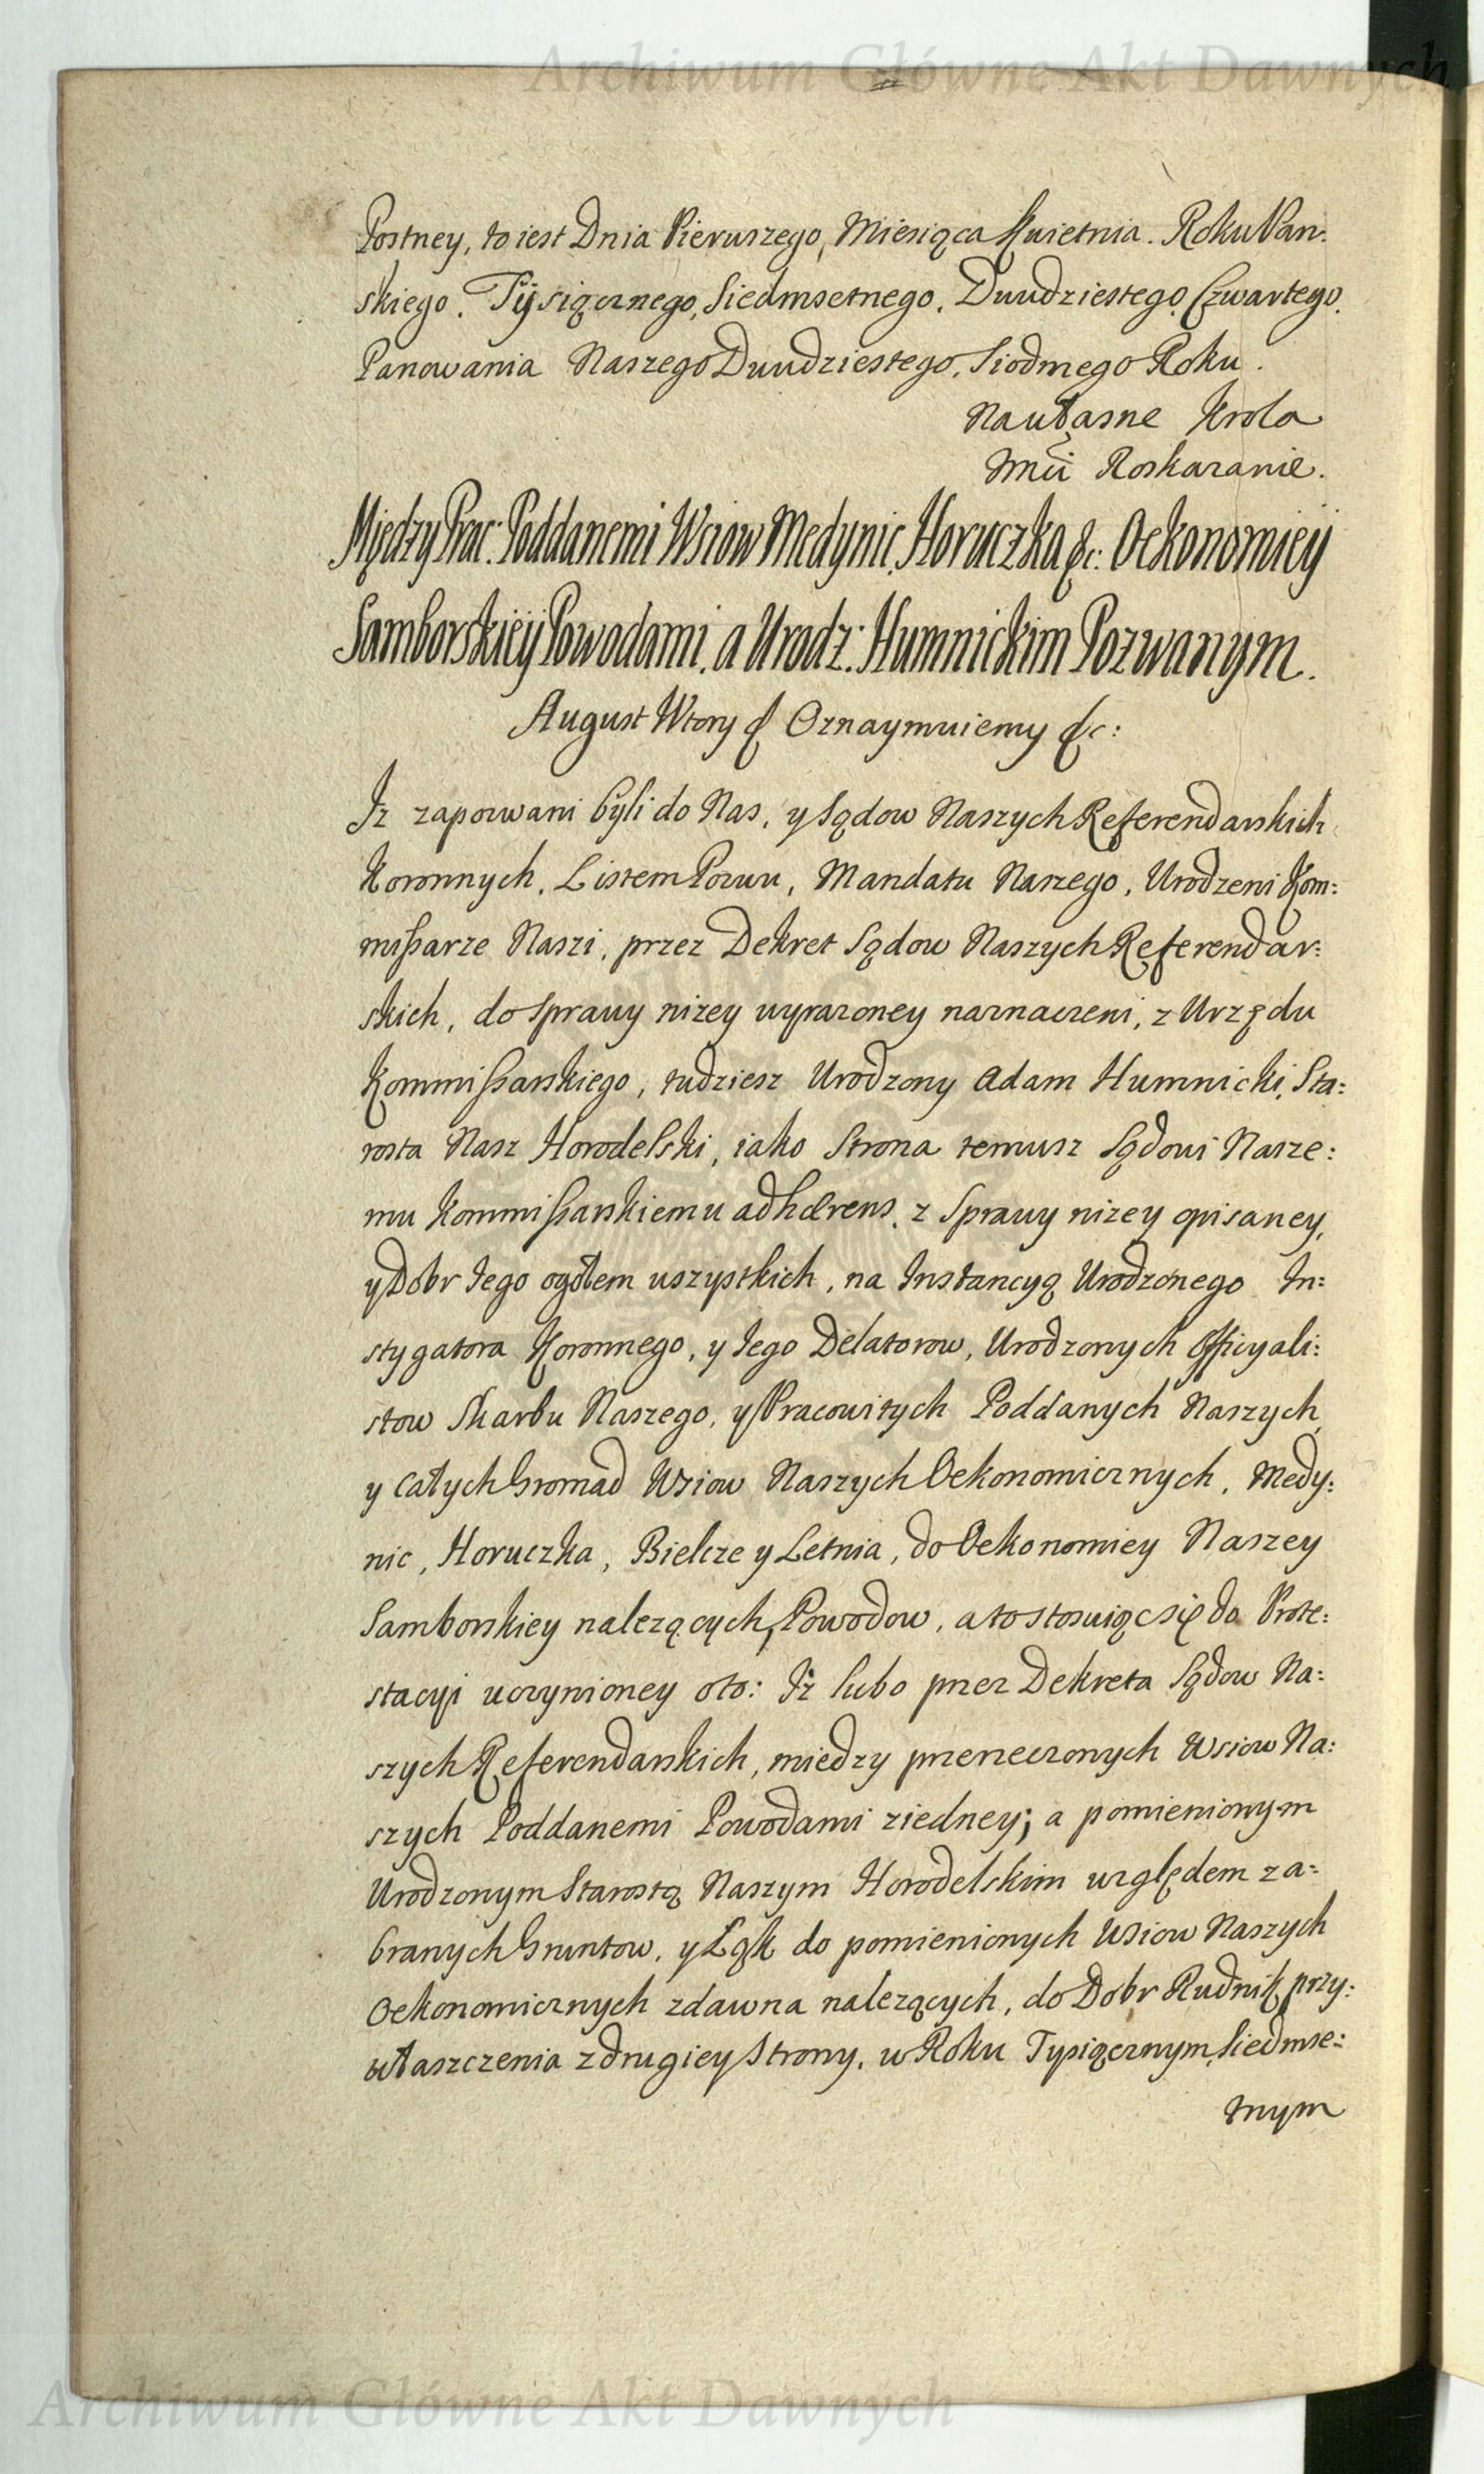 Archiwum Główne Akt Dawnych
Postney, to iest Dnia Pierwszego, Miesiąca Kwietnia. Roku Pan:
skiego. Tysiącznego, Siedmsetnego, Dwudziestego, Czwartego.
Panowania Naszego Dwudziestego, Siodmego Roku.
Na własne Krola
Jmći Roskazanie.
Między Prac: Poddanemi Wsiow Medynic, Horuczka &c: Oekonomiey
Samborskiey Powodami, a Urodz: Humnickim Pozwanym.
August Wtory & Oznaymuiemy &c:
Iz zapozwani byli do Nas, y Sądow Naszych Referendarskich
Koronnych, Listem Pozwu, Mandatu Naszego, Urodzeni Kom:
mißarze Naszi, przez Dekret Sądow Naszych Referendar:
skich, do sprawy nizey wyrazoney naznaczeni, z Urzędu
Kommißarskiego, tudziesz Urodzony Adam Humnicki, Sta:
rosta Nasz Horodelski, iako Strona temusz Sądowi Nasze:
mu Kommißarskiemu adhærens, z Sprawy nizey opisaney,
y Dobr Iego ogołem wszystkich, na Instancyą Urodzonego In:
stygatora Koronnego, y Iego Delatorow, Urodzonych Officyali:
stow Skarbu Naszego, y Pracowitych Poddanych Naszych
y całych Gromad Wsiow Naszych Oekonomicznych, Medy:
nic, Horuczka, Bielcze y Letnia, do Oekonomiey Naszey
Samborskiey nalezących, Powodow, a to stosuiąc się do Prote:
stacyi uczynioney oto: Iż lubo przez Dekreta Sądow Na:
szych Referendarskich, miedzy przerzeczonych Wsiow Na:
szych Poddanemi Powodami ziedney; a pomienionym
Urodzonym Starostą Naszym Horodelskim względem za:
branych Gruntow, y Łąk do pomienionych Wsiow Naszych
Oekonomicznych zdawna nalezących, do Dobr Rudnik przy:
właszczenia z drugiey Strony, w Roku Tysiącznym, Siedmse:
tnym
Archiwum Główne Akt Dawnych